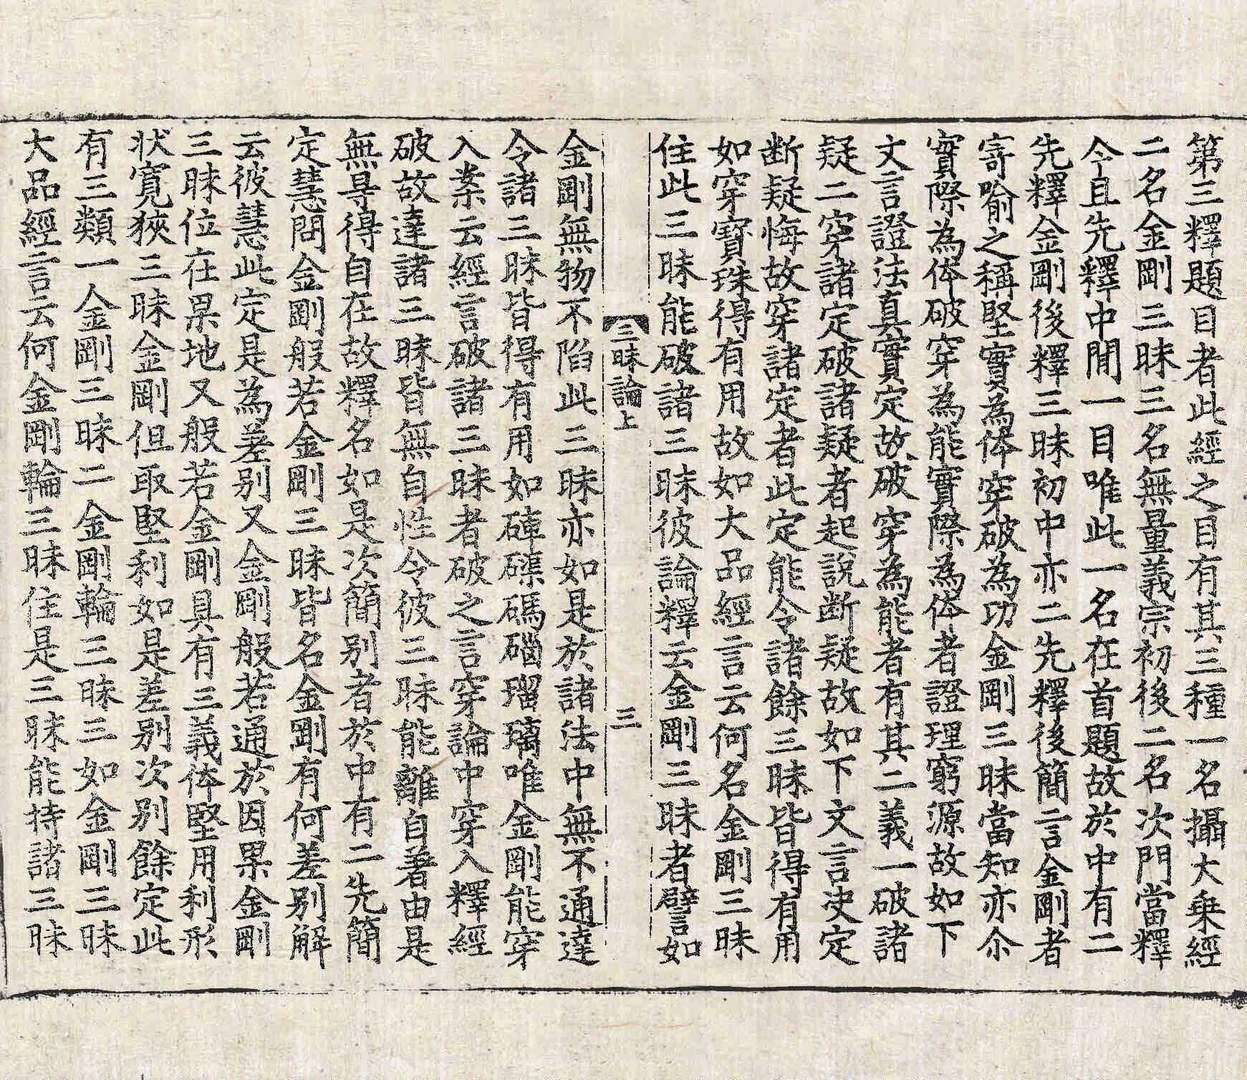 第三釋題目者此經之目有其三種一名攝大乗經
二名金剛三昧三名無量義宗初後二名次門當釋
今且先釋中間一目唯此一名在首題故於中有二
先釋金剛後釋三昧初中亦二先釋後簡言金剛者
寄喻之稱堅實為体穿破為功金剛三昧當知亦尒
實際為体破穿為能實際為体者證理窮源故如下
文言證法真實定故破穿為能者有其二義一破諸
疑二穿諸定破諸疑者起說断疑故如下文言决定
断疑悔故穿諸定者此定能令諸餘三昧皆得有用
如穿寶珠得有用故如大品經言云何名金剛三昧
住此三昧能破諸三昧彼論釋云金剛三昧者譬如
三昧論上 三
金剛無物不陷此三昧亦如是於諸法中無不通達
令諸三昧皆得有用如硨磲碼碯瑠璃唯金剛能穿
入案云經言破諸三昧者破之言穿論中穿入釋經
破故達諸三昧皆無自性令彼三昧能離自著由是
無㝵得自在故釋名如是次簡別者於中有二先簡
定慧問金剛般若金剛三昧皆名金剛有何差別解
云彼慧此定是為差別又金剛般若通於因果金剛
三昧位在果地又般若金剛具有三義体堅用利形
狀寬狹三昧金剛但取堅利如是差別次別餘定此
有三類一金剛三昧二金剛輪三昧三如金剛三昧
大品經言云何金剛輪三昧住是三昧能持諸三昧